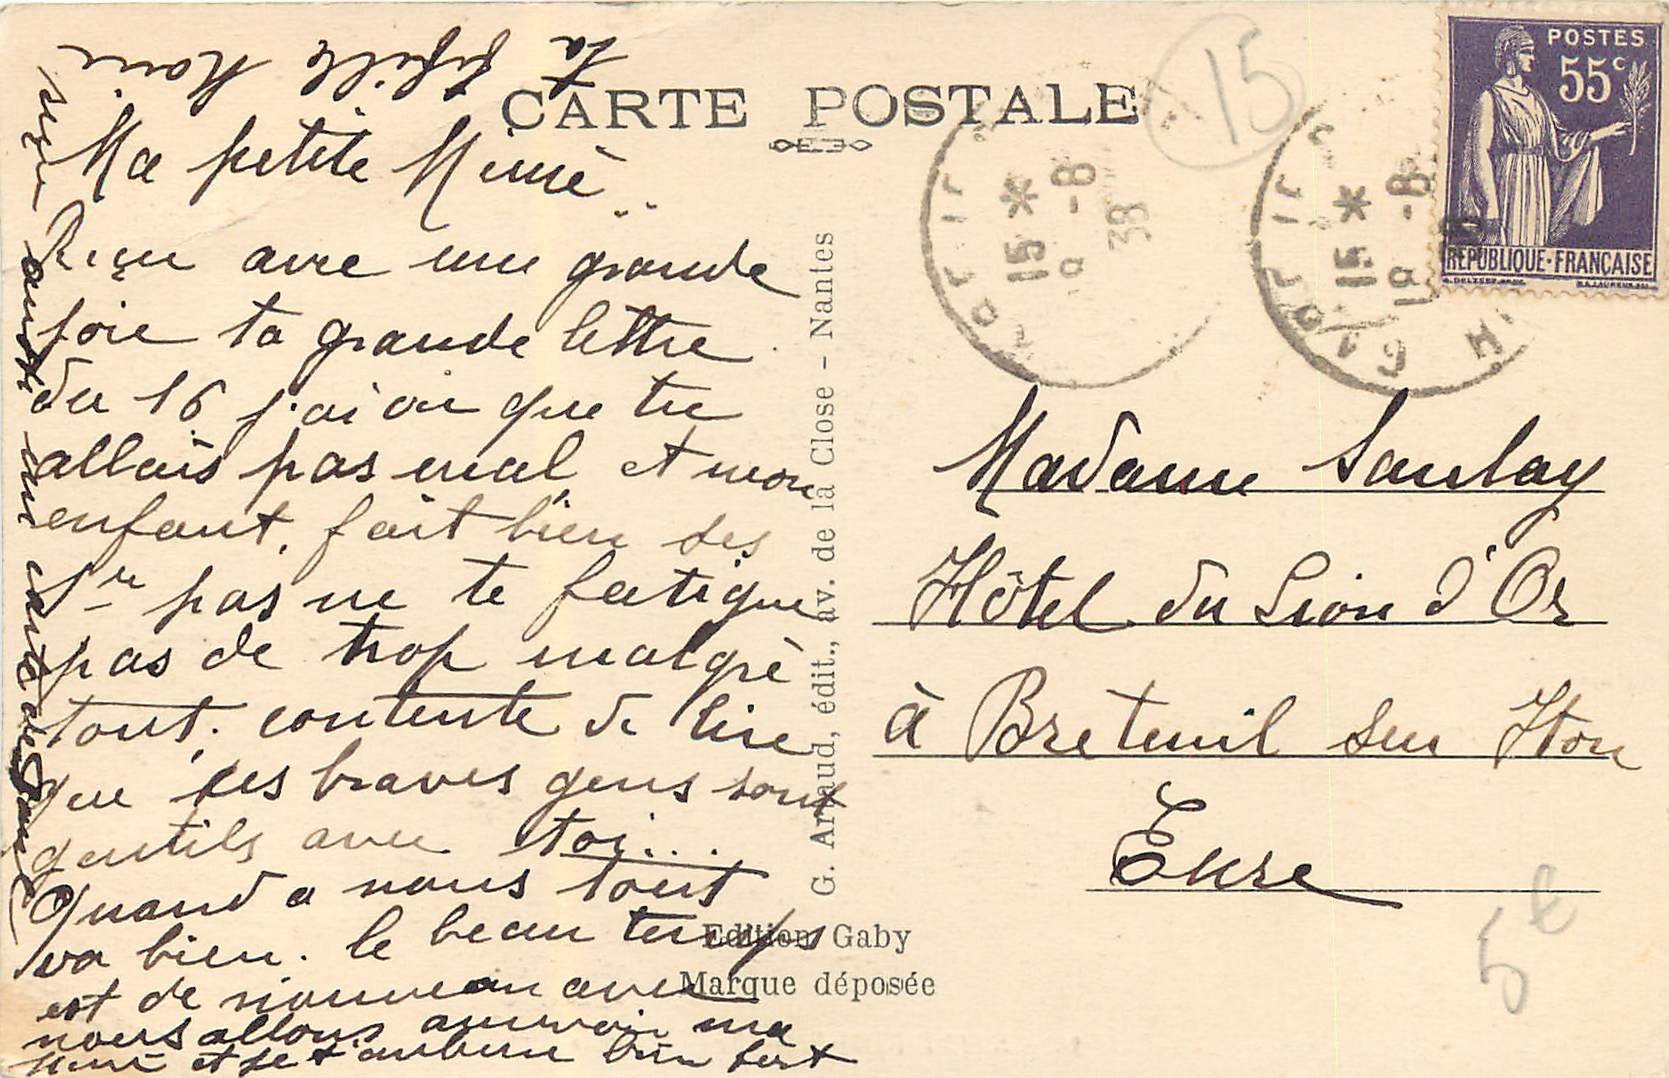 CARTE POSTALE
Ma petite Mimé..
Reçu avec une grande
joie ta grande lettre
du 16 j'ai vu que tu
allais pas mal et mon
enfant, fait bien des
pas ne te fatigue
pas de trop malgré
tout, contente de lire
que ces braves gens sont
gentils avec toi...
Quand a nous tout
va bien. le beau temps
est de nouveau avec
nous allons au revoir ma
Mimé et je t'embrasse bien fort
ta fifille
G. Artaud, édit., av. de la Close - Nantes
Edition Gaby
Marque déposée
15
15 *
19 -8
38
15 *
19 -8
POSTES
55c
REPUBLIQUE·FRANÇAISE
Madame Saulay
Hôtel du Lion d'Or
à Breteuil sur Iton
Eure
5€